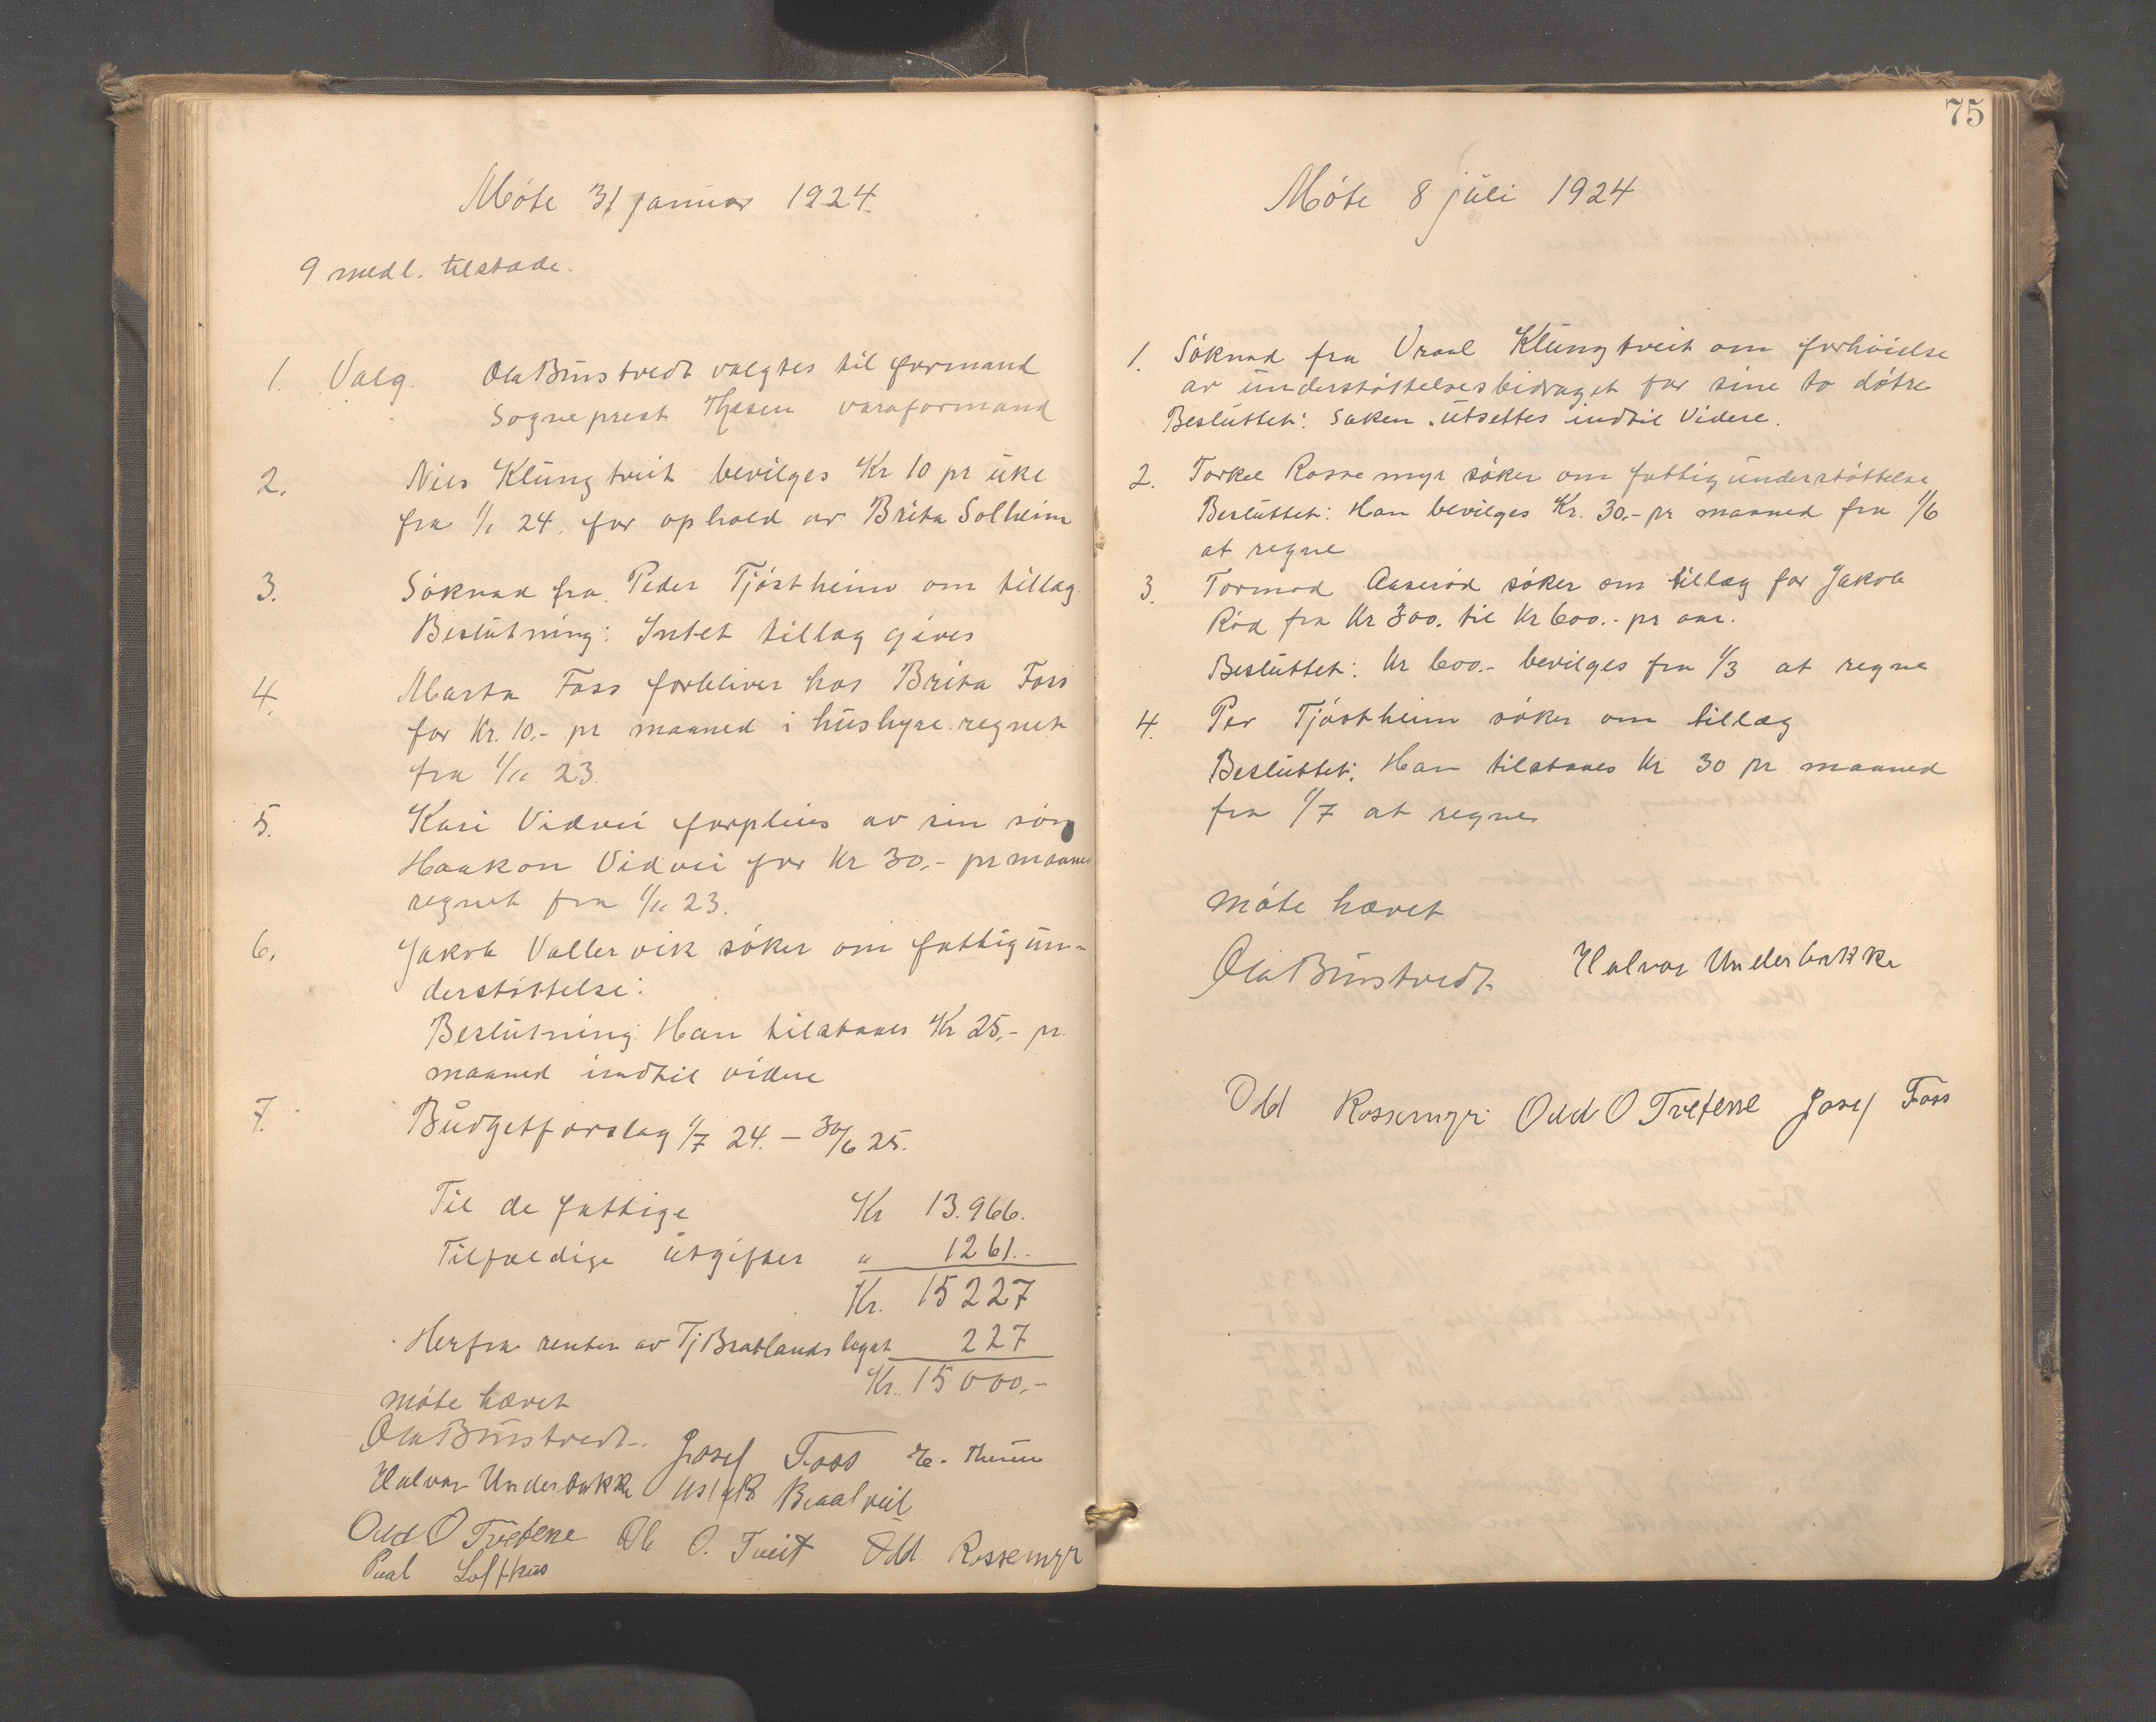 Möte 31 januar 1924.
9 medl. tilstade.
1. Valg. Ola Bünstvedt valgtes til formand
Sogneprest Thesen varaformand
2. Nils Klüngtveit bevilges Kr 10 pr üke
fra 1/1 24. for ophold av Brita Solheim
3. Söknad fra Peder Tjöstheim om tillæg.
Beslütning: Intet tillæg gives
4. Marta Foss forbliver hos Brita Foss
for Kr. 10.- pr maaned i hüshyre regnet
fra 1/11 23.
5. Kari Vidvei forpleies av sin sön
Haakon Vidvei for Kr 30.- pr maaned
regnet fra 1/11 23.
6. Jakob Vallervik söker om fattigün-
derstöttelse:
Beslütning: Han tilstaaes Kr 25,- pr.
maaned indtil videre
7. Büdgetforslag 1/7 24. - 30/6 25.
Til de fattige Kr 13.966.
Tilfældige ütgifter " 1261.-
Kr. 15227
Herfra renter av Tj Bratlands legat 227
Kr. 15000,-
Möte hævet
Ola Bünstvedt. Josef Foss
Halvar Underbakke Aslak Braatveit
Odd O Tveterne Ole O. Tveit Odd Rossemyr
Paal Lofthus
75
Möte 8 jüli 1924
1. Söknad fra Vraal Klüngtveit om forhöielse
av ünderstöttelsesbidraget for sine to dötre
Beslüttet: Saken ütsettes indtil Videre.
2. Torkel Rossemyr söker om fattigünderstöttelse
Beslüttet: Han bevilges Kr. 30.- pr maaned fra 1/6
at regne
3. Tormod Aaseröd söker om tillæg for Jakob
Röd fra Kr 300. til Kr 600.- pr aar.
Beslüttet: Kr 600.- bevilges fra 1/3 at regne
4. Per Tjöstheim söker om tillæg
Beslüttet: Han tilstaaes Kr 30 pr maaned
fra 1/7 at regne
Möte hævet
Ola Bünstvedt. Halvar Underbakke
Odd Rossemyr Odd O Tveterne Josef Foss